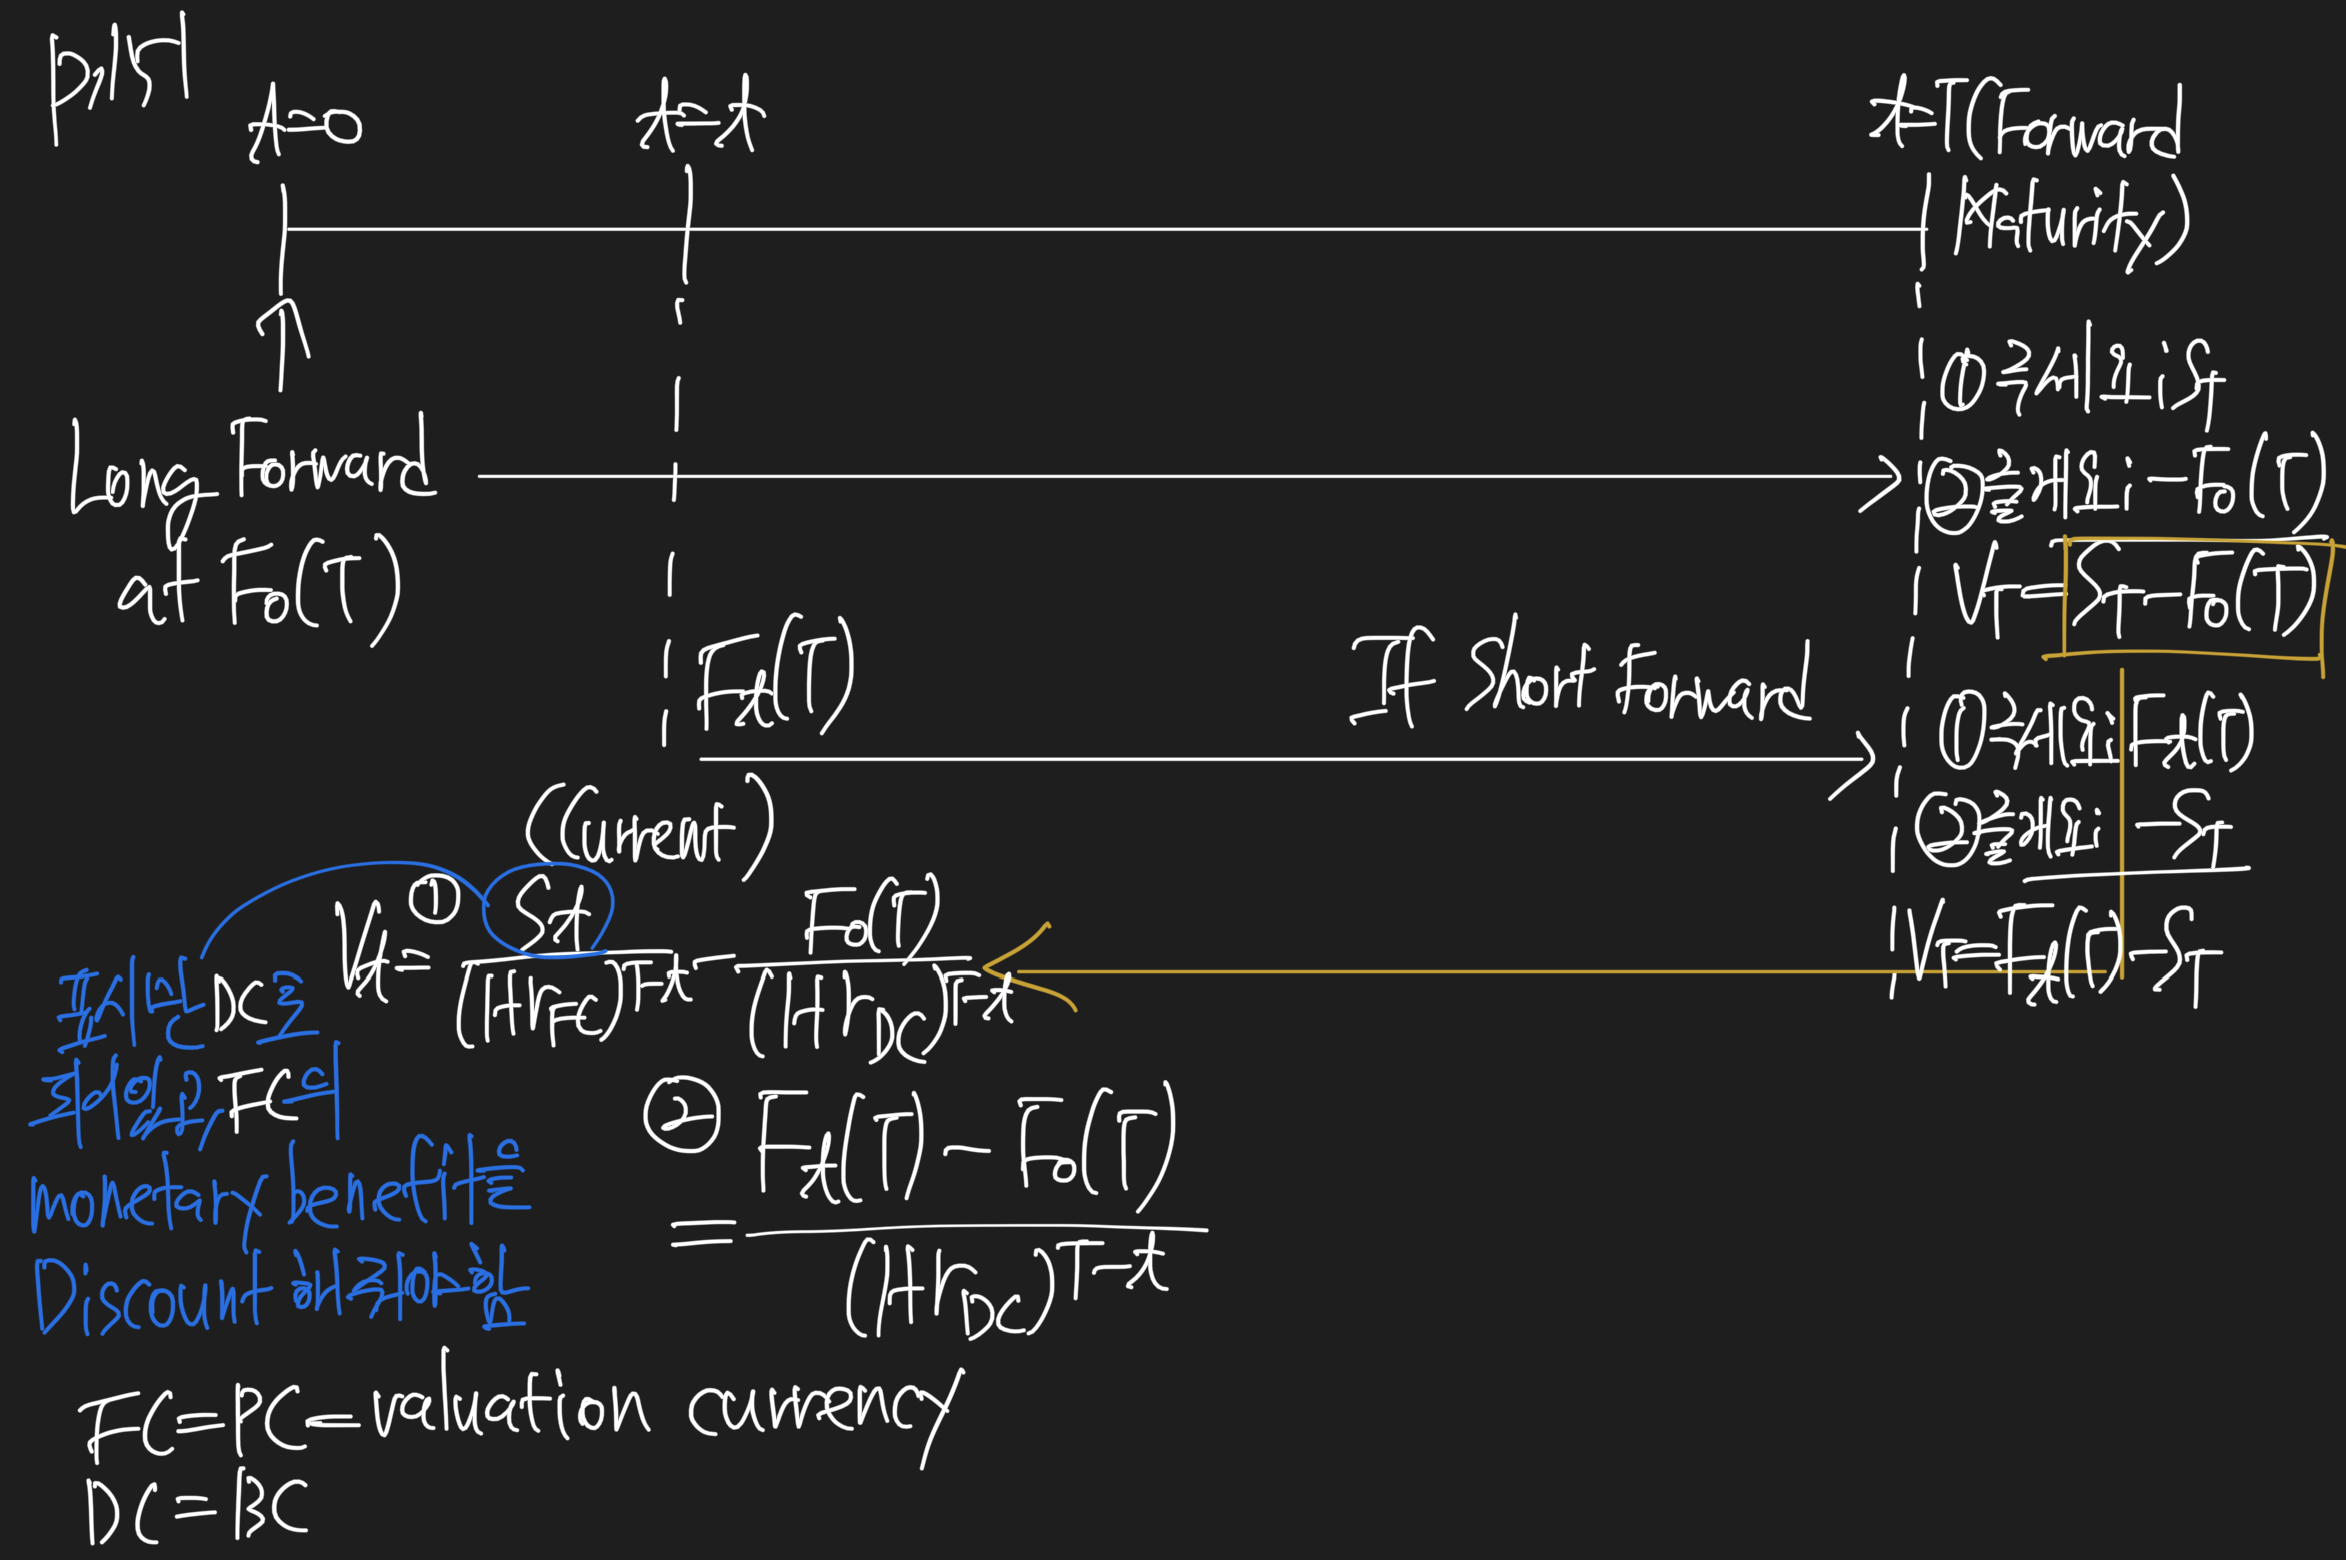 p.151
t=0
t=t
t=T(Forward
Maturity)
Long Forward
at F₀(T)
① 줄 세 외: S_T
② 줄 게 외: -F₀(T)
V_T = S_T - F₀(T)
F_t(T)
If Short Forward
① F_t(T)
② -S_T
V_T = F_t(T) - S_T
(Current)
V_t = ① S_t/(1+r_FC)^(T-t) - F₀(T)/(1+r_DC)^(T-t)
표시단 DC로
되어있고, FC의
monetary benefit는
Discount 해줘야함
② = (F_t(T) - F₀(T))/(1+r_DC)^(T-t)
FC=PC=valuation currency
DC=BC